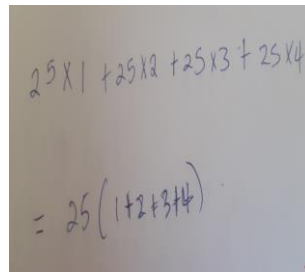 25×1 +25×2 +25×3 + 25×4
= 25(1+2+3+4)